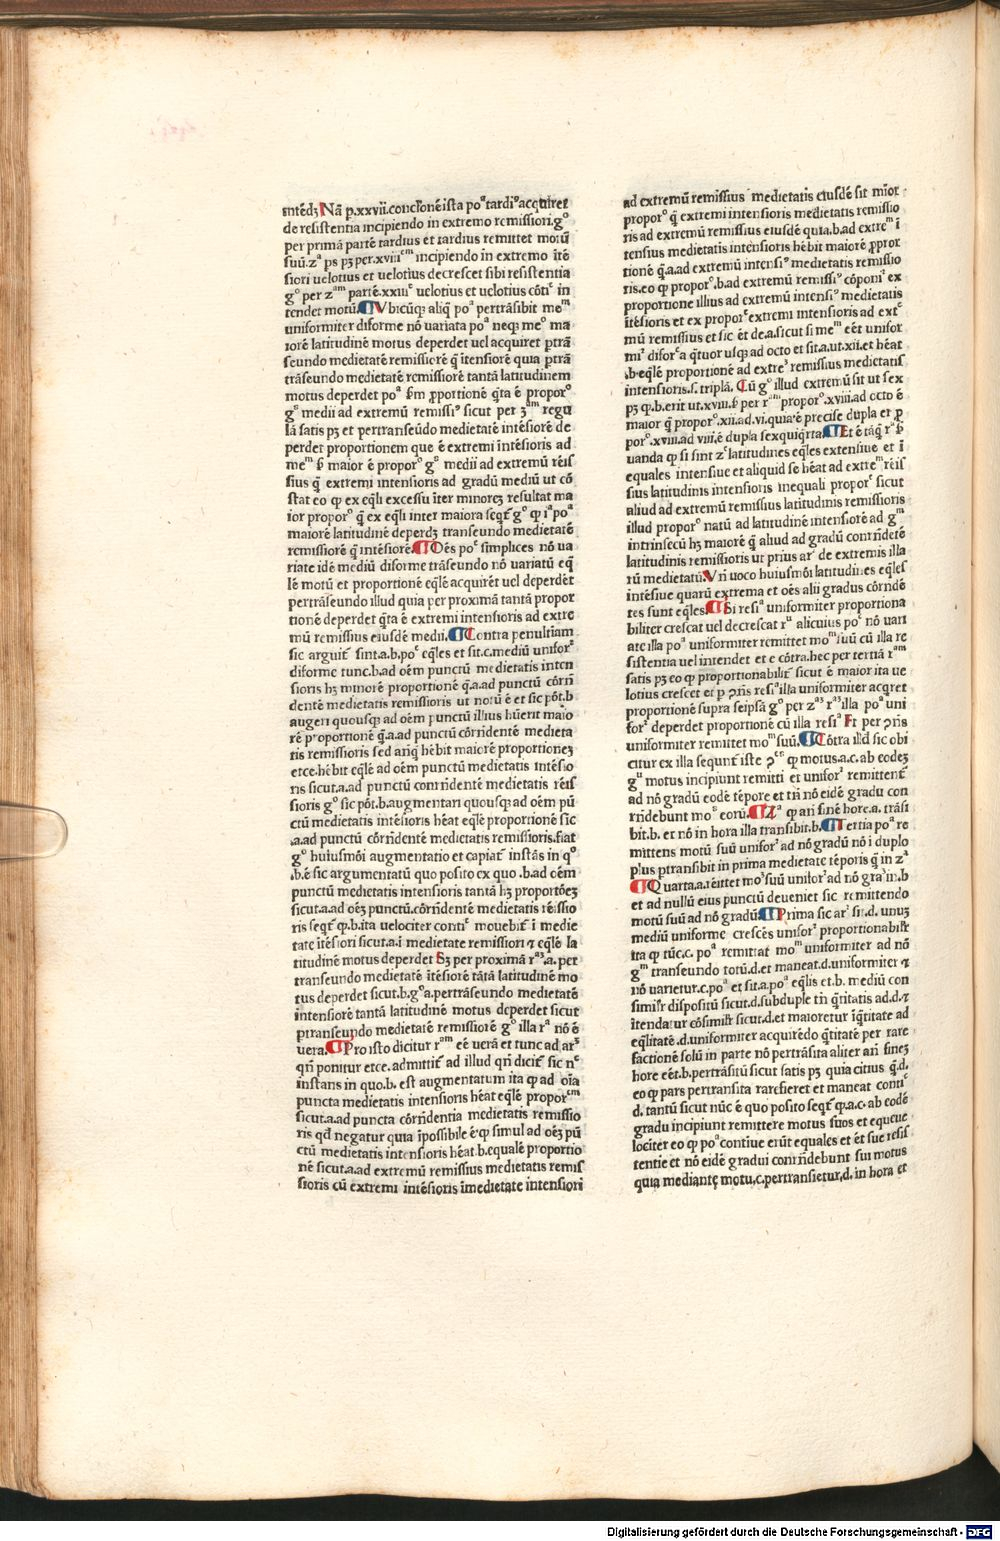 intēdꝫ Nā p.xxvii.conclꝰonē ista poᵃ tardiꝰ acquiret
de resistentia incipiendo in extremo remissiori.gᵒ
per primā partē tardius et tardius remittet motū
suū.zᵃ ps pꝫ per.xviiiᶜᵐ incipiendo in extremo ītē
siori uelotius et uelotius decrescet sibi resistentia
gᵒ per zᵃᵐ partē.xxiiiᵉ uelotius et uelotius cōtiᵉ in
tendet motū.¶Vbicūqꝫ aliq̄ poᵃ pertrāsibit meᵐ
uniformiter diforme nō uariata poᵃ neqꝫ meᵒ ma
iorē latitudinē motus deperdet uel acquiret ptrā
seundo medietatē remissiorē q̄ itēsiorē quia ptrā
trāseundo medietatē remissiorē tantā latitudinem
motus deperdet poᵃ ẜm ꝓportionē q̄ta ē proporᵒ
gᵒ medii ad extremū remissiꝰ sicut per 3ᵃᵐ regu
lā satis pꝫ et pertranseūdo medietatē intēsiorē de
perdet proportionem que ē extremi intēsioris ad
meᵐ ẜ maior ē proporᵒ gᵒ medii ad extremū rēis
sius q̄ extremi intensioris ad gradū mediū ut cō
stat eo ꝙ ex eq̄li excessu iter minoreꝫ resultat ma
ior proporᵒ q̄ ex eq̄li inter maiora seqt̄ gᵒ ꝙ iᵃ poᵃ
maiorē latitudinē deperdꝫ transeundo medietatē
remissiorē q̄ intēsiorē.¶Oēs poᵉ simplices nō ua
riate idē mediū diforme trāseundo nō uariatū eq̄
lē motū et proportionē eq̄lē acquirēt uel deperdēt
pertrāseundo illud quia per proximā tantā propor
tionē deperdet q̄ta ē extremi intensioris ad extre
mū remissius eiusdē medii.¶Contra penultiam
sic arguit̄ sint.a.b.poᵉ eq̄les et sit.c.mediū uniforᵉ
diforme tunc.b.ad oēm punctū medietatis inten
sioris hꝫ minorē proportionē q̄.a.ad punctū cōrn̄
dentē medietatis remissioris ut notū ē et sic pōt.b
augeri quousqꝫ ad oēm punctū illius hūerit maio
rē proportionē q̄.a.ad punctū cōrn̄dentē medieta
tis remissioris sed anq̄ hēbit maiorē proportioneꝫ
etce.hēbit eq̄lē ad oēm punctū medietatis intēsio
ris sicut.a.ad punctū conrn̄dentē medietatis rēis
sioris gᵒ sic pōt.b.augmentari quousqꝫ ad oēm pū
ctū medietatis intēsioris hēat eq̄lē proportionē sic
.a.ad punctū cōrn̄dentē medietatis remissioris.fiat
gᵒ huiusmōi augmentatio et capiat̄ instās in qᵒ
.b.ē sic argumentatū quo posito ex quo .b.ad oēm
punctū medietatis intensioris tantā hꝫ proportōeꝫ
sicut.a.ad oēꝫ punctū.cōrn̄dentē medietatis rēissio
ris seqt̄ ꝙ.b.ita uelociter contiᵉ mouebit̄ i medie
tate itēsiori sicut.a.i medietate remissiori ⁊ eq̄lē la
titudinē motus deperdet Sꝫ per proximā rᵃ³.a.per
transeundo medietatē itēsiorē tātā latitudinē mo
tus deperdet sicut.b.gᵒa.pertrāseundo medietatē
intēsiorē tantā latitudinē motus deperdet sicut
ptranseundo medietatē remissiorē gᵒ illa rᵃ nō ē
uera.¶Pro isto dicitur rᵃᵐ eē uerā et tunc ad ar³
qn̄ ponitur etce.admittit̄ ad illud qn̄ dicit̄ sic nᶜ
instans in quo.b. est augmentatum ita ꝙ ad oīa
puncta medietatis intensioris hēat eq̄lē proporᶜᵐ
sicut.a.ad puncta cōrn̄dentia medietatis remissio
ris qd̄ negatur quia īpossibile ē ꝙ simul ad oēꝫ pū
ctū medietatis intensioris hēat.b.equalē proportio
nē sicut.a.ad extremū remissius medietatis remis
sioris cū extremi intēsioris īmedietate intensiori
ad extremū remissius medietatis eiusdē sit mīor
proporᵒ q̄ extremi intensioris medietatis remissio
ris ad extremū remissius eiusdē quia.b.ad extreᵐ ī
tensius medietatis intēsioris hēbit maiorē ꝓpror
tionē q̄.a.ad extremū intensiꝰ medietatis remissio
ris.eo ꝙ proporᵒ.b.ad extremū remissiꝰ cōponiᵗ ex
proportione illius ad extremū intensiꝰ medietatis
itēsioris et ex proporᵉ extremi intensioris ad extᶜ
mū remissius et sic ēt de.a.sicut si meᵐ eēt unifor
miᵗ diforᶜa q̄tuor usqꝫ ad octo et sit.a.ut.xii.et hēat
.b.eq̄lē proportionē ad extreᵃ remissius medietatis
intensioris.s.triplā. Cū gᵒ illud extremū sit ut sex
pꝫ ꝙ.b.erit ut.xviii.ẜ per rᵃᵐ proporᵒ.xviii.ad octo ē
maior q̄ proporᵒ.xii.ad.vi.quia ē precise dupla et ꝓ
porᵒ.xviii.ad viii.ē dupla sexquiq̄rta.¶Et ē tāq̄ rᵃ ẜ
uanda ꝙ si sint zᵉ latitudines eq̄les extensiue et ī
equales intensiue et aliquid se hēat ad extreᵐ rēis
sius latitudinis intensioris inequali proporᶜ sicut
aliud ad extremū remissius latitudinis remissioris
illud proporᵒ natū ad latitudinē intensiorē ad gᵐ
intrinsecū hꝫ maiorē q̄ aliud ad gradū conrn̄detē
latitudinis remissioris ut prius arᵗ de extremis illa
rū medietatū.Vn̄ uoco huiusmōi latitudines eq̄les
intēsiue quarū extrema et oēs alii gradus cōrn̄dē
tes sunt eq̄les.¶Si resiᵃ uniformiter proportiona
biliter crescat uel decrescat rᵘ alicuius poᵉ nō uari
ate illa poᵃ uniformiter remittet moᵐ suū cū illa re
sistentia uel intendet et e cōtra.hec per tertiā rᵃᵐ
satis pꝫ eo ꝙ proportionabilit̄ sicut ē maior ita ue
lotius crescet et p ꝯn̄s resiᵃ illa uniformiter acq̄ret
proportionē supra seipsā gᵒ per zᵃ³ rᵃ³ illa poᵃ uni
forᵗ deperdet proportionē cū illa resiᵃ Et per ꝯn̄s
uniformiter remittet moᵐ suū.¶Cōtra illd̄ sic obi
citur ex illa sequnt̄ iste ꝯᵉˢ ꝙ motus.a.c. ab eodeꝫ
gᵘ motus incipiunt remitti et uniforᵗ remittent̄
ad nō gradū eodē tēpore et tn̄ nō eidē gradu con
rn̄debunt moᵒ eorū.¶Zᵃ ꝙ an̄ finē hore.a. trāsi
bit.b. et nō in hora illa transibit.b.¶Tertia poᵃ re
mittens motū suū uniforᵗ ad nō gradū nō i duplo
plus ptransibit in prima medietate tēporis q̄ in zᵃ
¶Quarta.a.reittet moᵐ suū uniforᵗ ad nō graᵐ in.b
et ad nullū eius punctū deueniet sic remittendo
motū suū ad nō gradū.¶Prima sic arᵗ sit.d. unuꝫ
mediū uniforme crescēs uniforᵗ proportionabilr̄
ita ꝙ tūc.c. poᵃ remittat moᵐ uniformiter ad nō
gᵐ transeundo totū.d.et maneat.d.uniformiter ⁊
nō uarietur.c.poᵃ et sit.a.poᵃ eq̄lis et.b. mediū con
similr̄ dispositū sicut.d.subduple tn̄ q̄titatis ad.d.⁊
itendatur cōsimilr̄ sicut.d.et maioretur iq̄titate ad
eq̄litatē .d.uniformiter acquirēdo q̄titatē per rare
factionē solū in parte nō pertrāsita aliter an̄ fineꝫ
hore eēt.b.pertrāsitū sicut satis pꝫ quia citius q̄.d.
eo ꝙ pars pertransita rarefieret et maneat contiᶜ
d. tantū sicut nūc ē quo posito seqt̄ ꝙ.a.c. ab eodē
gradu incipiunt remittere motus suos et equeue
lociter eo ꝙ poᵃ contiue erūt equales et ēt sue resis
tentie et nō eidē gradui conrn̄debunt sui motus
quia mediante motu.c.pertransietur.d. in hora et
Digitalisierung gefördert durch die Deutsche Forschungsgemeinschaft - DFG